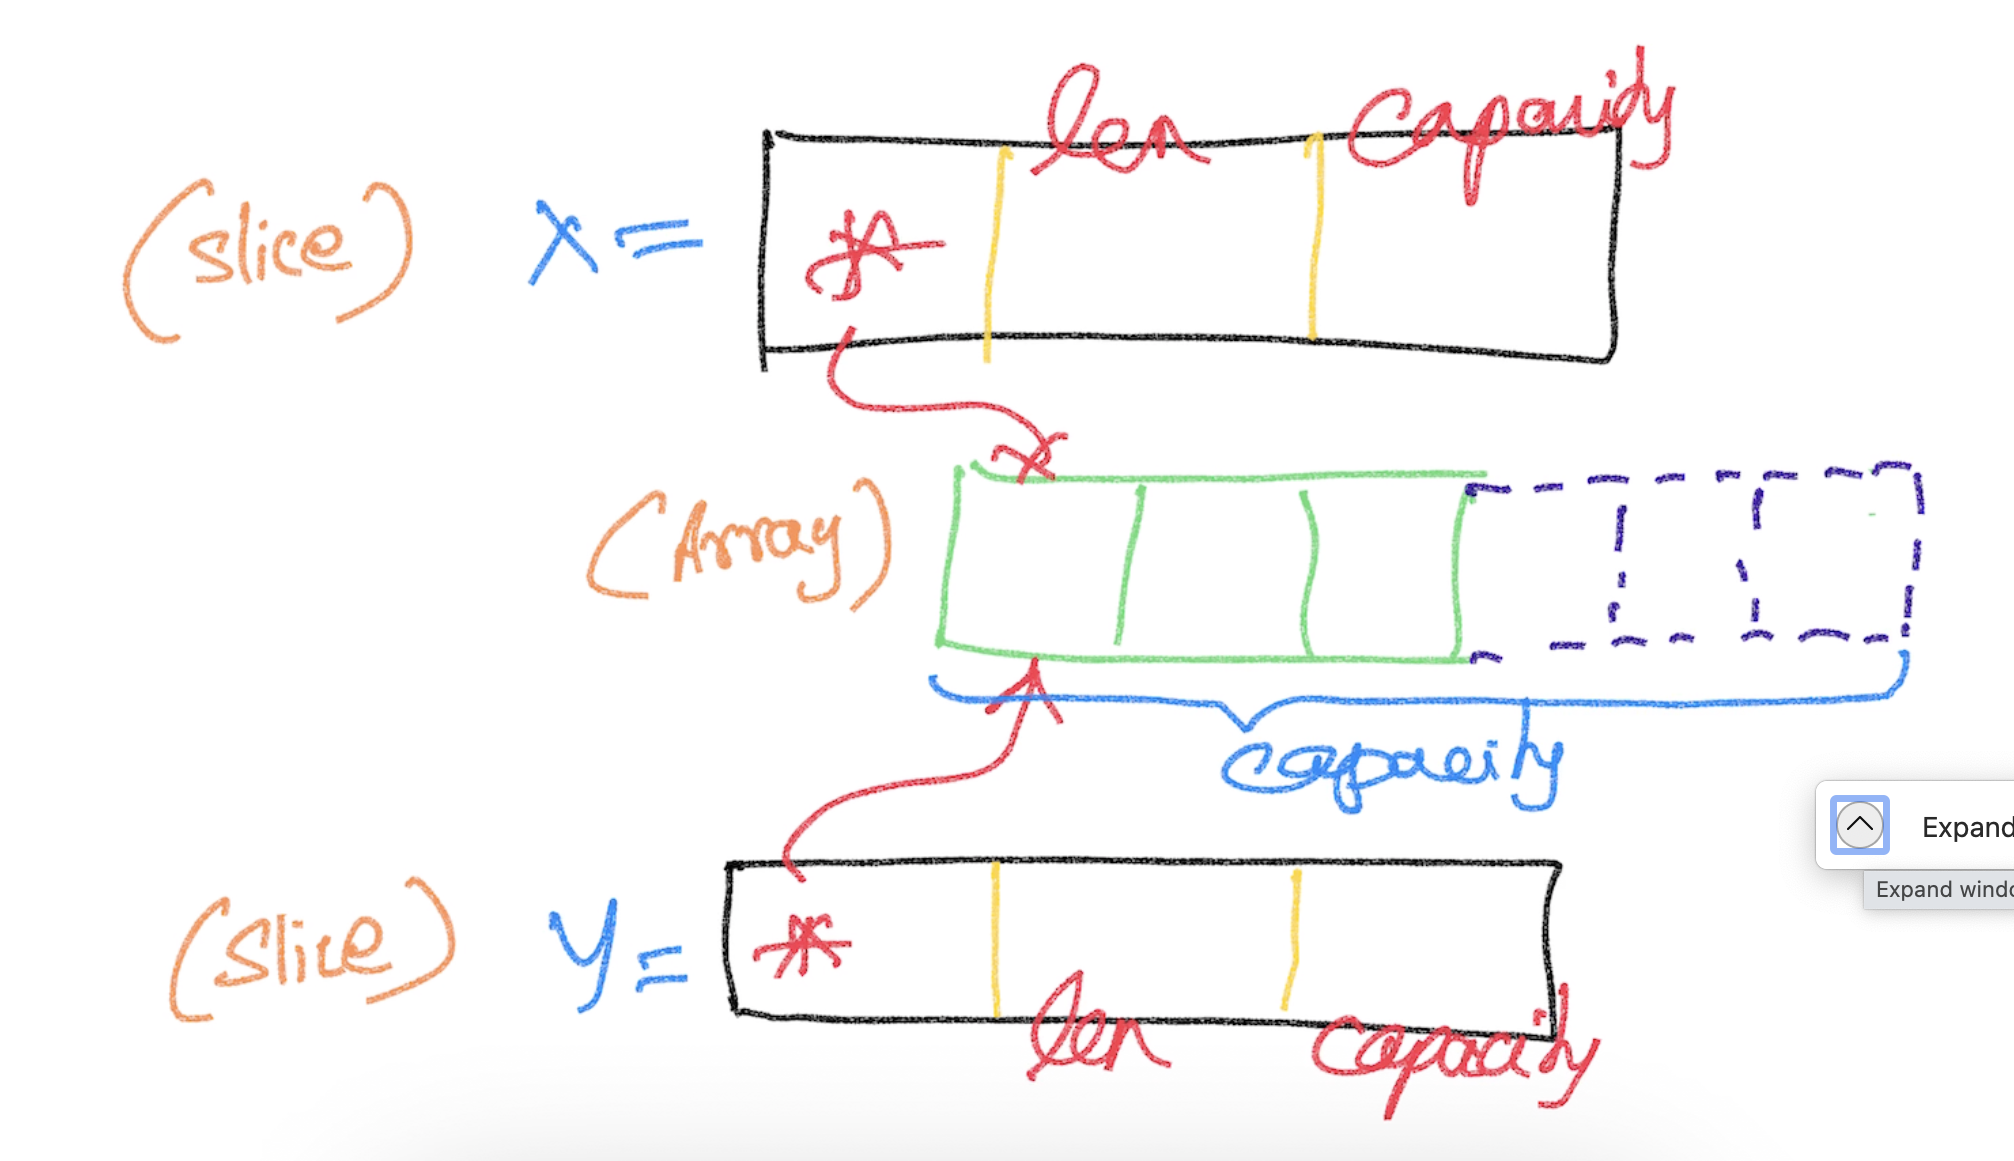 len capacity
(slice) X = *
(Array)
capacity
Expand
Expand windo
(Slice) y = *
len capacity